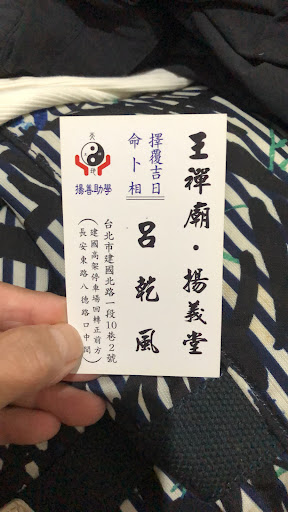 王禪廟·揚義堂
呂乾風
擇覆吉日
命卜相
揚善助學
台北市建國北路一段10巷2號
(建國高架停車場回轉正前方
長安東路八德路口中間)